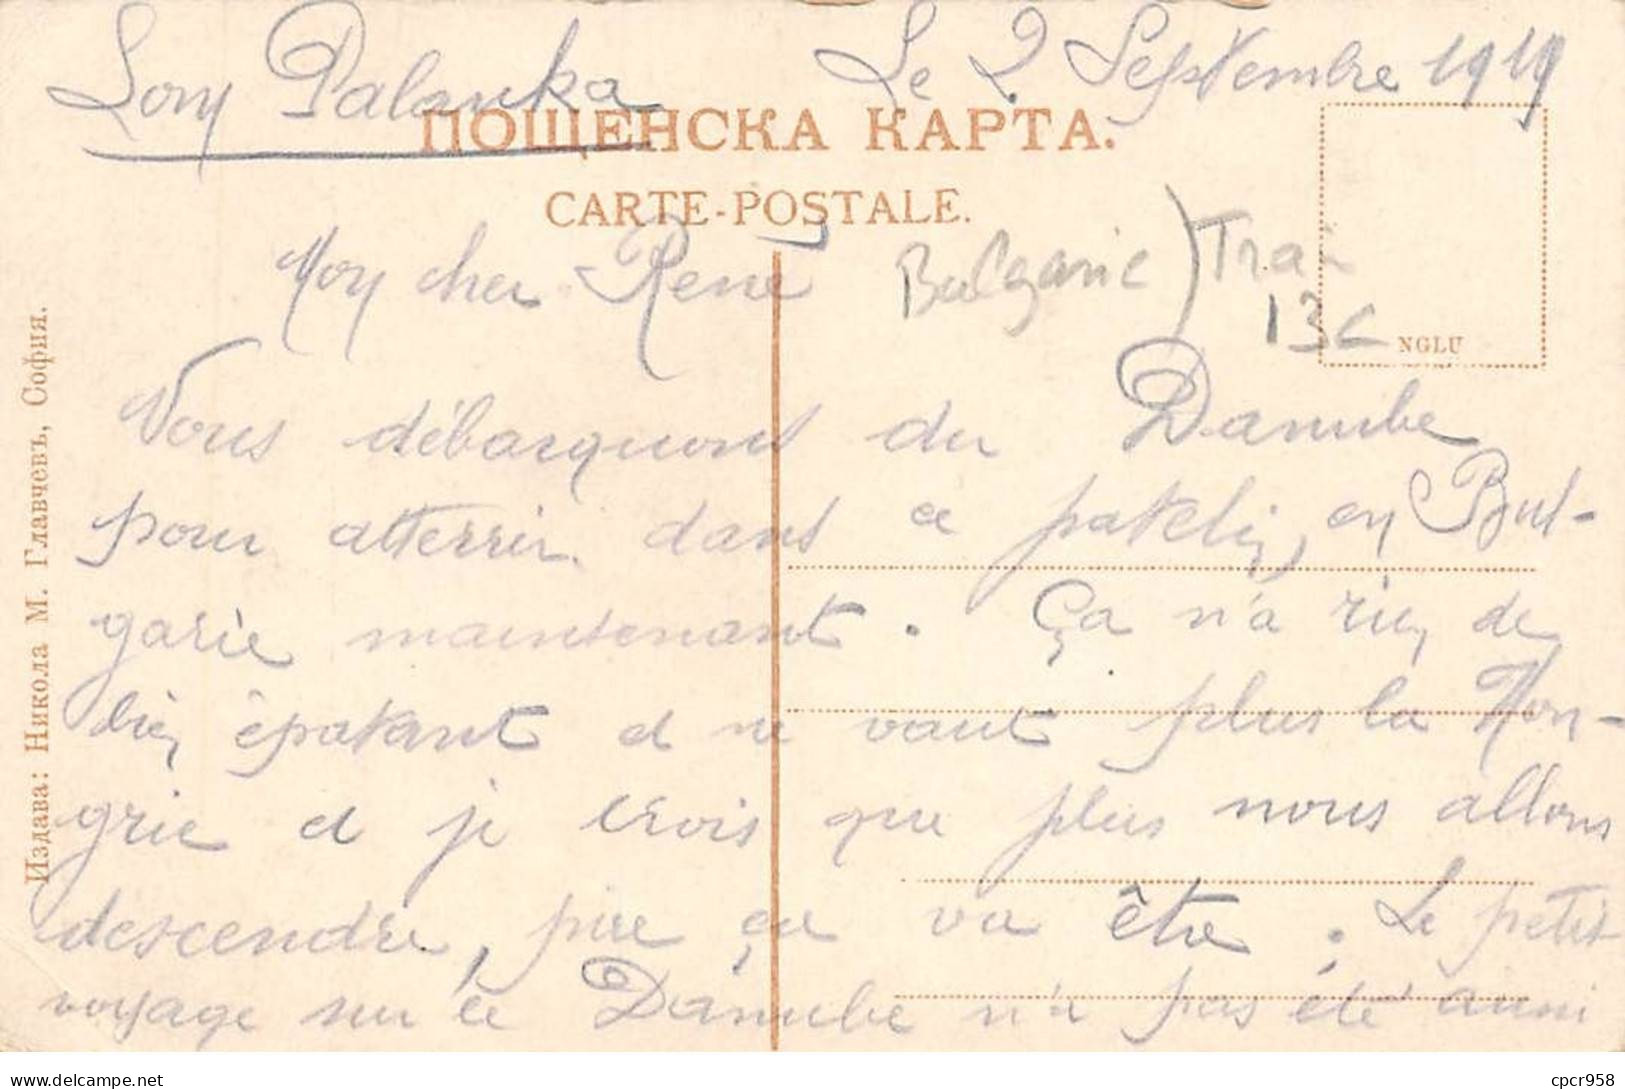 Lom Palanka Le 2 Septembre 1919
ПОЩЕНСКА КАРТА.
CARTE-POSTALE.
Mon cher René
Bulgarie) Trai
13C
NGLU
Nous débarquons du Danube
pour atterrir dans ce patelin, en Bul-
garie maintenant. Ça n'a rien de
bien épatant et ne vaut plus la Hon-
grie et je crois que plus nous allons
descendre, pire ça va être. Le petit
voyage sur le Danube n'a pas été aussi
Издава: Никола М. Главчевъ, София.
Delcampe.net
cpcr958